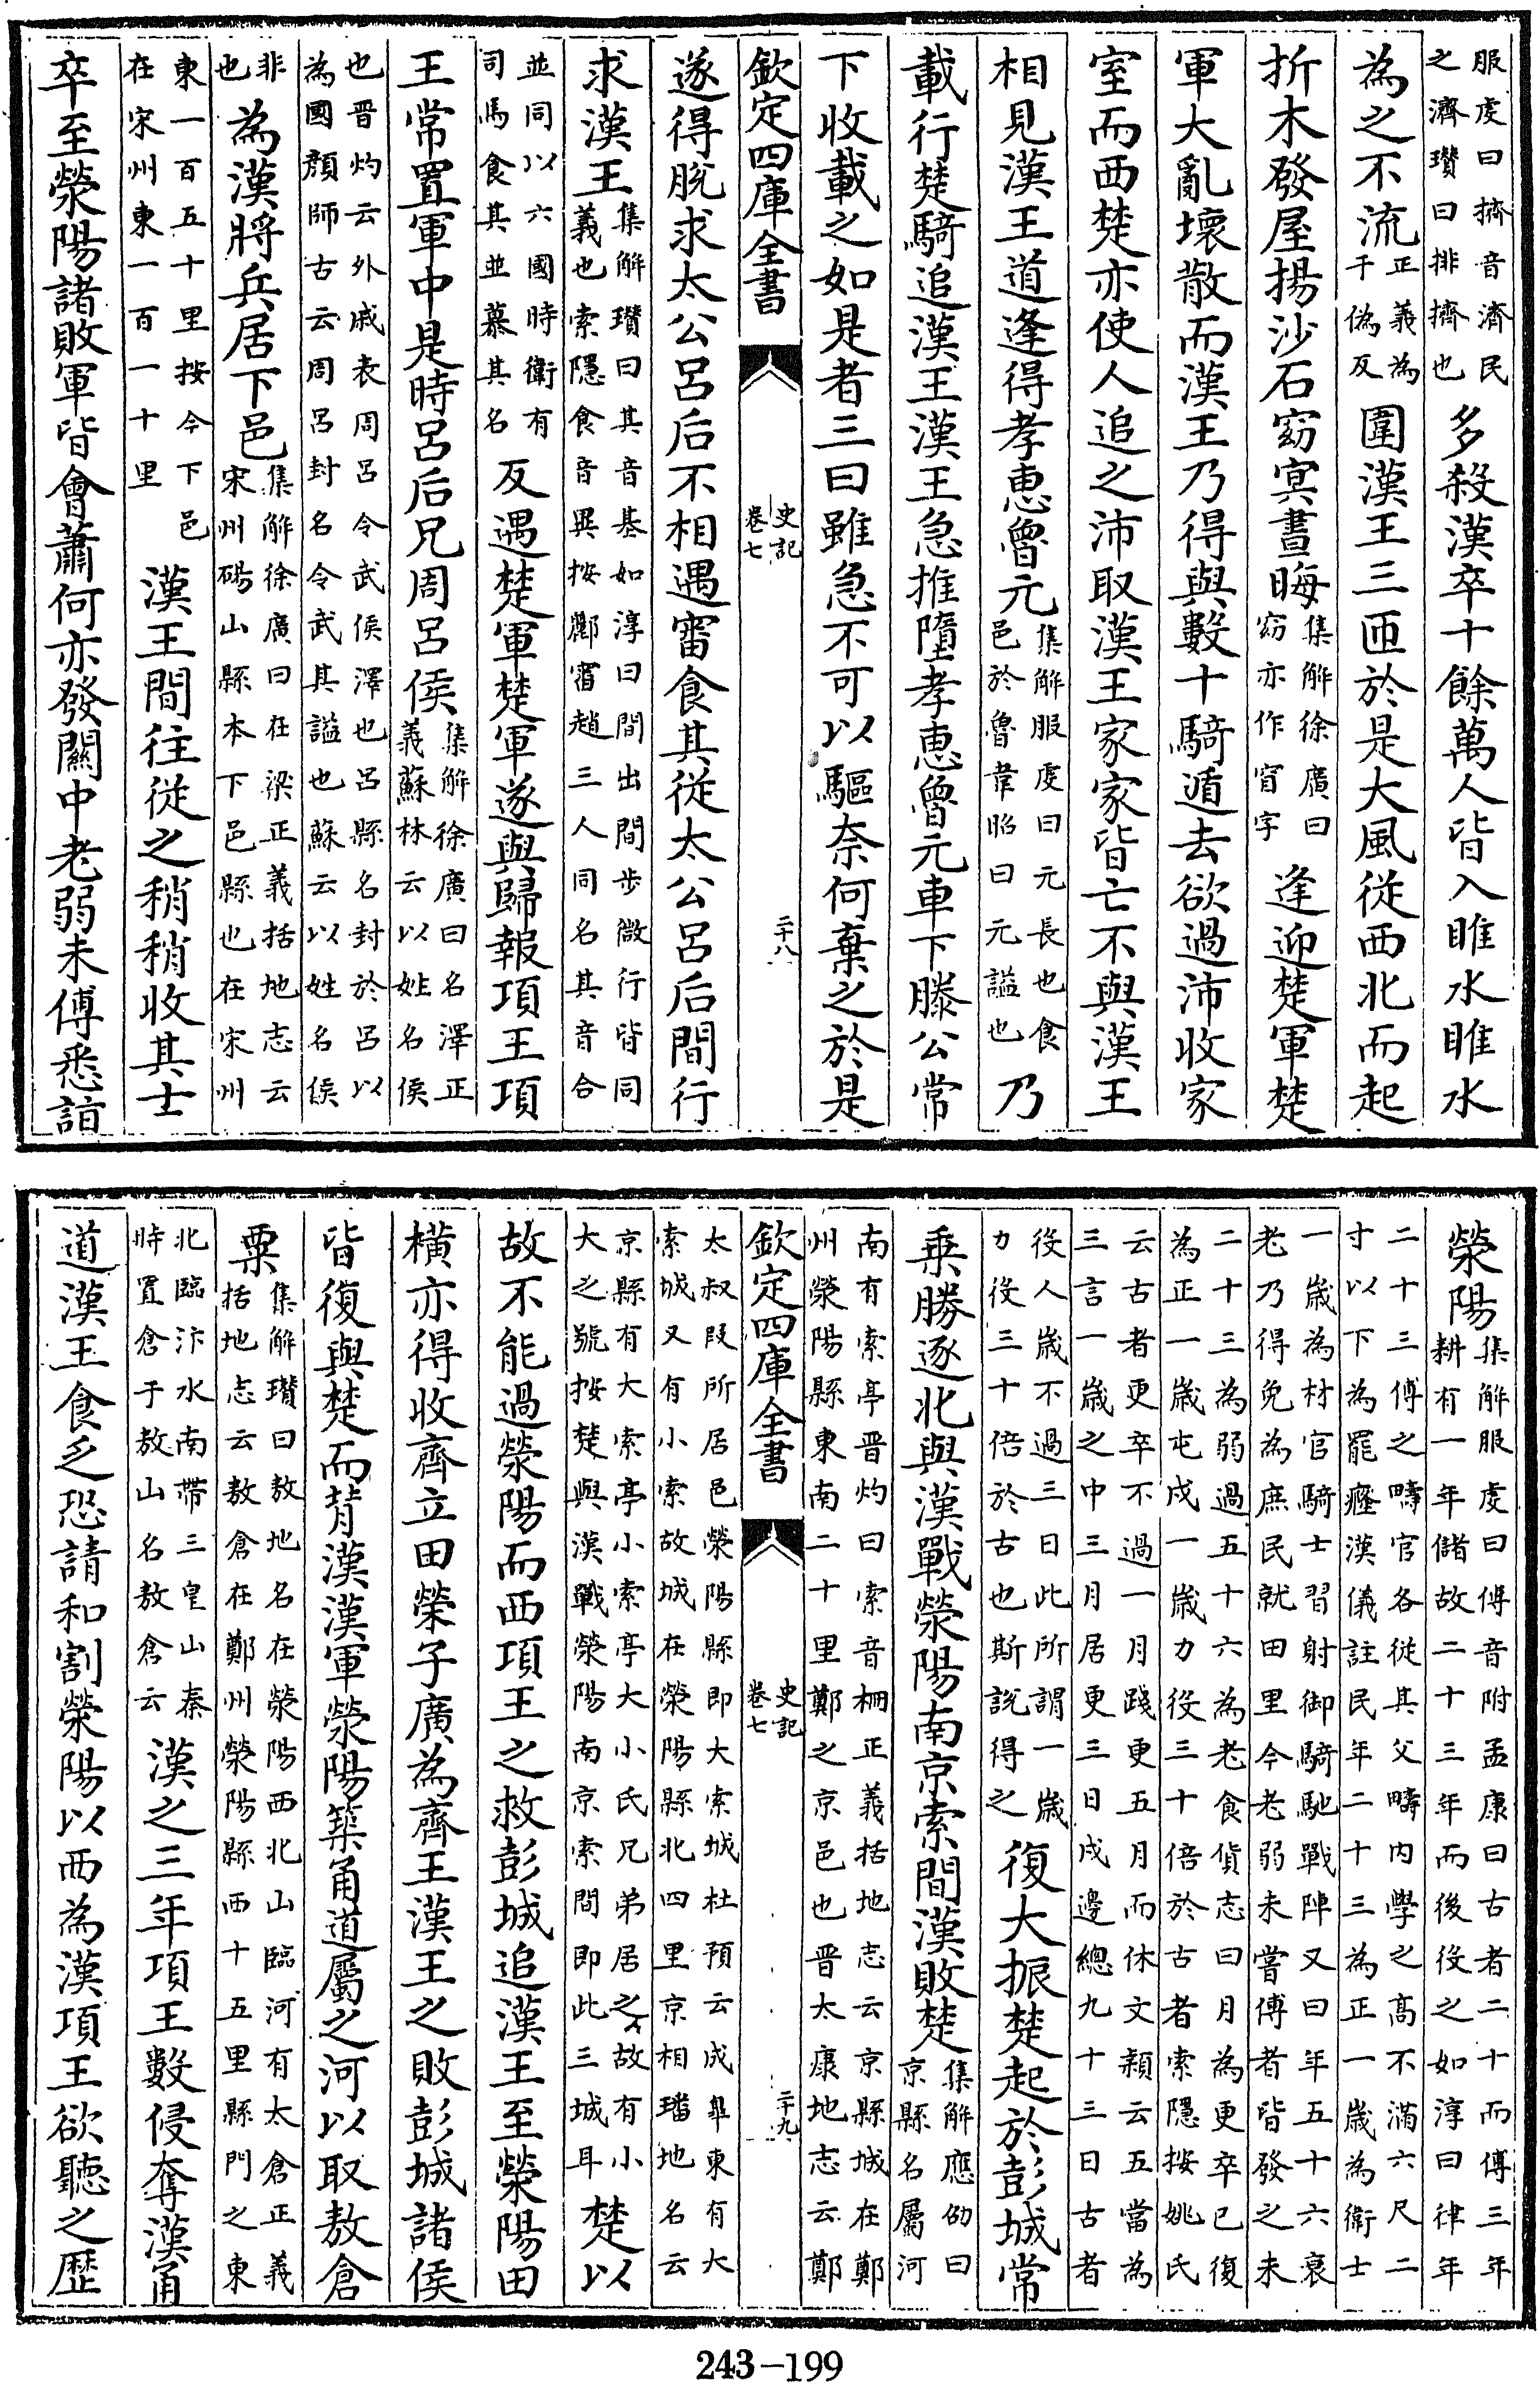 服虔曰擠音濟民之濟瓚曰排擠也多殺漢卒十餘萬人皆入睢水睢水
為之不流正義為千偽反圍漢王三匝於是大風從西北而起
折木發屋揚沙石窈冥晝晦集解徐廣曰窈亦作窅字逢迎楚軍楚
軍大亂壞散而漢王乃得與數十騎遁去欲過沛收家
室而西楚亦使人追之沛取漢王家家皆亡不與漢王
相見漢王道逢得孝惠魯元集解服虔曰元長也食邑於魯韋昭曰元謚也乃
載行楚騎追漢王漢王急推墮孝惠魯元車下滕公常
下收載之如是者三曰雖急不可以驅奈何棄之於是
欽定四庫全書 史記卷七 二十八
遂得脫求太公呂后不相遇審食其從太公呂后間行
求漢王集解瓚曰其音基如淳曰間出間步微行皆同義也索隱食音異按酈審趙三人同名其音合
並同以六國時衛有司馬食其並慕其名反遇楚軍楚軍遂與歸報項王項
王常置軍中是時呂后兄周呂侯集解徐廣曰名澤正義蘇林云以姓名侯
也晉灼云外戚表周呂令武侯澤也呂縣名封於呂以為國顏師古云周呂封名令武其謚也蘇云以姓名侯
非也為漢將兵居下邑集解徐廣曰在梁正義括地志云宋州碭山縣本下邑縣也在宋州
東一百五十里按今下邑在宋州東一百一十里漢王間往從之稍稍收其士
卒至滎陽諸敗軍皆會蕭何亦發關中老弱未傅悉詣
滎陽集解服虔曰傅音附孟康曰古者二十而傅三年耕有一年儲故二十三年而後役之如淳曰律年
二十三傅之疇官各從其父疇內學之高不滿六尺二寸以下為罷癃漢儀註民年二十三為正一歲為衛士
一歲為材官騎士習射御騎馳戰陣又曰年五十六衰老乃得免為庶民就田里今老弱未嘗傅者皆發之未
二十三為弱過五十六為老食貨志曰月為更卒已復為正一歲屯戍一歲力役三十倍於古者索隱按姚氏
云古者更卒不過一月踐更五月而休文穎云五當為三言一歲之中三月居更三日戍邊總九十三日古者
役人歲不過三日此所謂一歲力役三十倍於古也斯說得之復大振楚起於彭城常
乘勝逐北與漢戰滎陽南京索間漢敗楚集解應劭曰京縣名屬河
南有索亭晉灼曰索音柵正義括地志云京縣城在鄭州滎陽縣東南二十里鄭之京邑也晉太康地志云鄭
欽定四庫全書 史記卷七 二十九
太叔段所居邑滎陽縣即大索城杜預云成皋東有大索城又有小索故城在滎陽縣北四里京相璠地名云
京縣有大索亭小索亭大小氏兄弟居之故有小大之號按楚與漢戰滎陽南京索間即此三城耳楚以
故不能過滎陽而西項王之救彭城追漢王至滎陽田
橫亦得收齊立田榮子廣為齊王漢王之敗彭城諸侯
皆復與楚而背漢漢軍滎陽築甬道屬之河以取敖倉
粟集解瓚曰敖地名在滎陽西北山臨河有太倉正義括地志云敖倉在鄭州滎陽縣西十五里縣門之東
北臨汴水南帶三皇山秦時置倉于敖山名敖倉云漢之三年項王數侵奪漢甬
道漢王食乏恐請和割滎陽以西為漢項王欲聽之歷
243-199